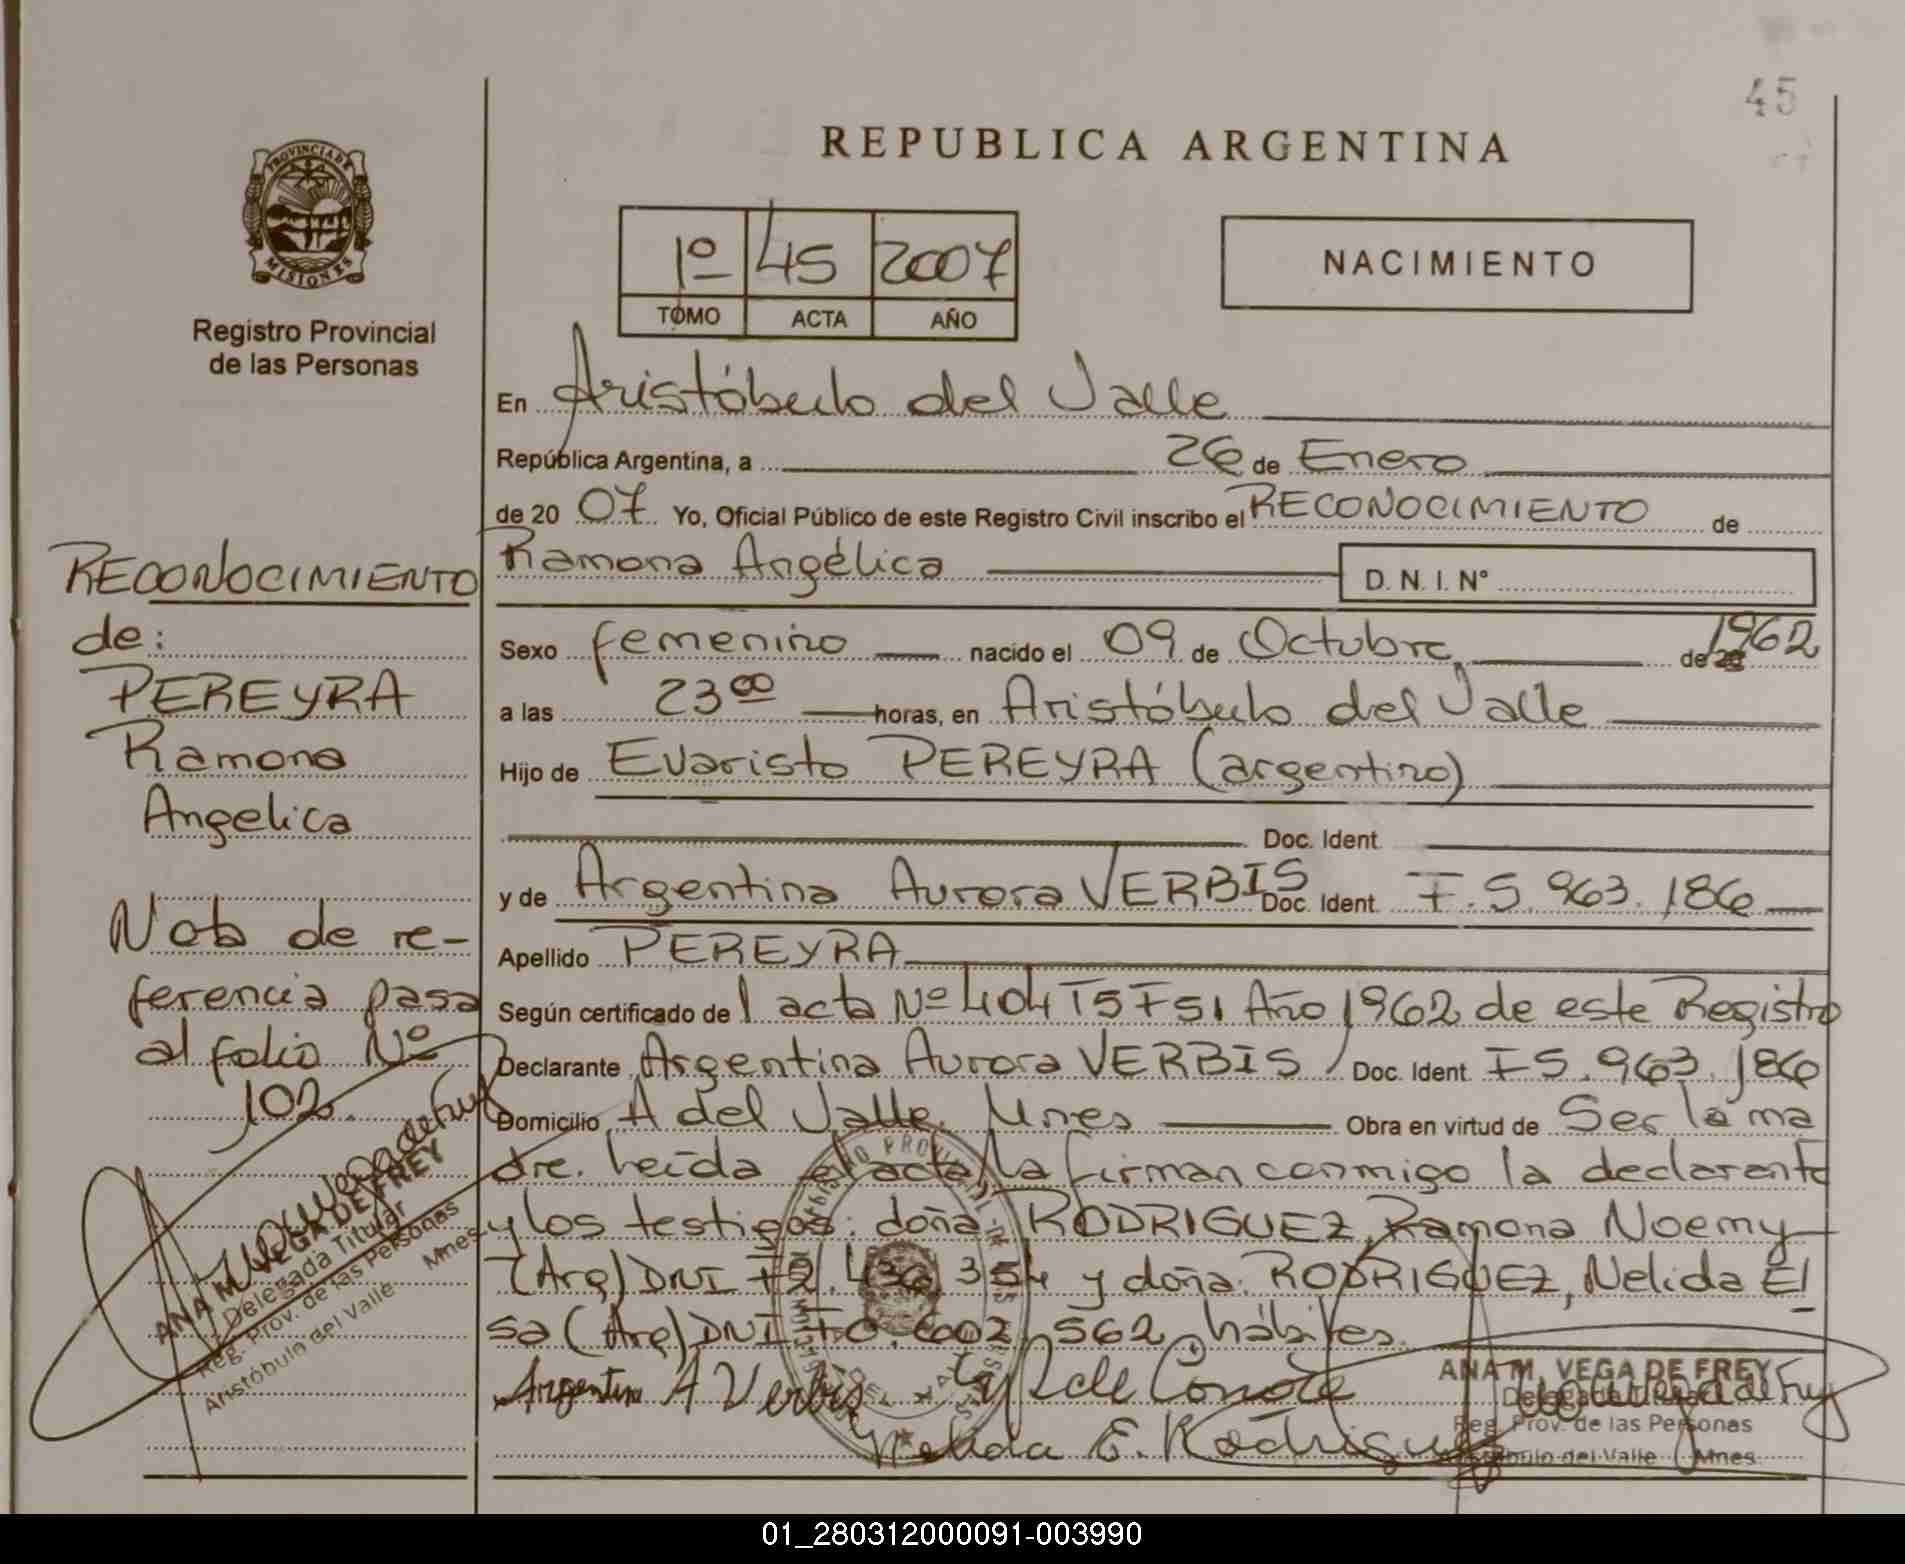 45
REPUBLICA ARGENTINA
PROVINCIA DE
MISIONES
Registro Provincial
de las Personas
1º 45 2007
TOMO ACTA AÑO
NACIMIENTO
En Aristóbulo del Valle
República Argentina, a 26 de Enero
de 20 07 Yo, Oficial Público de este Registro Civil inscribo el RECONOCIMIENTO de
Ramona Angélica D. N. I. N°
Sexo femenino nacido el 09 de Octubre de 1962
a las 23 00 horas, en Aristóbulo del Valle
Hijo de Evaristo PEREYRA (argentino)
Doc. Ident.
y de Argentina Aurora VERBIS Doc. Ident. F. 5.963.186
Apellido PEREYRA
Según certificado de l acta Nº 404 T5 F51 Año 1962 de este Registro
Declarante Argentina Aurora VERBIS Doc. Ident. F 5.963.186
Domicilio A del Valle. Mnes Obra en virtud de Ser la ma
dre. Leída el acta la firman conmigo la declarante
y los testigos: doña RODRIGUEZ, Ramona Noemy
(Arg) DNI 354 y doña: RODRIGUEZ, Nelida El
sa (Arg) DNI 562 hábiles.
Argentina A Verbis
Nelida E. Rodriguez
ANA M. VEGA DE FREY
Delegada Titular
Reg. Prov. de las Personas
Aristóbulo del Valle Mnes
RECONOCIMIENTO
de:
PEREYRA
Ramona
Angelica
Nota de re-
ferencia pasa
al folio Nº
102.
ANA M. VEGA DE FREY
Delegada Titular
Reg. Prov. de las Personas
Aristóbulo del Valle Mnes
01_280312000091-003990